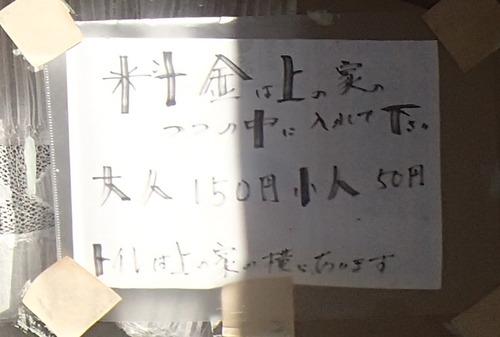 料金は上の家の
つつの中に入れて下さい
大人 150円 小人 50円
トイレは上の家の横にあります